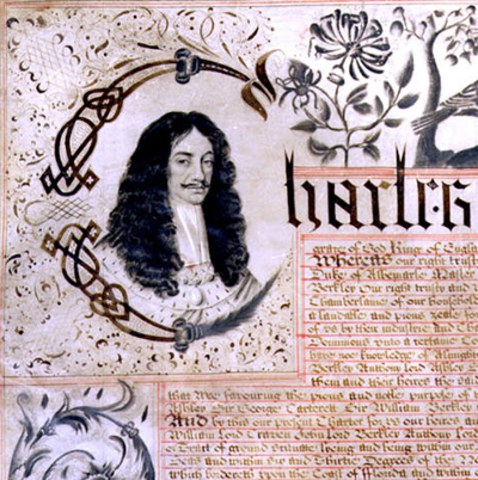 Charles
grace of God King of Engla
Whereas our right trust
Duke of Albemarle Master
Berkley Our right trusty and
Chamberlaine of our household
a laudable and pious zeale for
of vs by their industrie and Cha
Dominions vnto a certaine Co
have noe knowledge of Almight
Berkley Anthony lord Ashley
them and their heires the said
that Wee favouring the pious and noble purpose of
Ashley Sir George Carterett Sir William Berkley
And by this our present Charter for vs our heires and
William Lord Craven John Lord Berkley Anthony Lord
or Tract of ground scituate lyeing and being within our
Seas and within six and Thirtie Degrees of the
which bordereth vpon the Coast of Florida and within